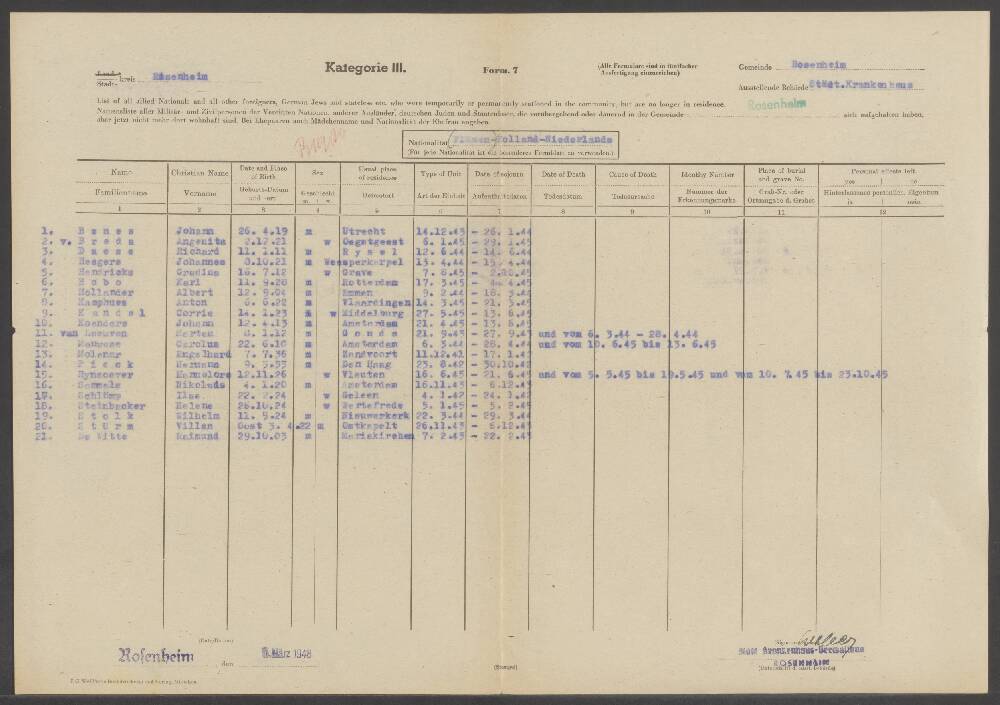 Stadt- kreis Rosenheim
Kategorie III.
Form. 7
(Alle Formulare sind in fünffacher Ausfertigung einzureichen)
Gemeinde Rosenheim
Ausstellende Behörde Städt. Krankenhaus
List of all allied Nationals and all other foreigners, German Jews and stateless etc. who were temporarily or permanently stationed in the community, but are no longer in residence.
Namensliste aller Militär- und Zivilpersonen der Vereinten Nationen, anderer Ausländer, deutschen Juden und Staatenlosen, die vorübergehend oder dauernd in der Gemeinde Rosenheim sich aufgehalten haben,
aber jetzt nicht mehr dort wohnhaft sind. Bei Ehepaaren auch Mädchenname und Nationalität der Ehefrau angeben.
Nationalität Holland-Niederlande
(Für jede Nationalität ist ein besonderes Formblatt zu verwenden.)
Name Christian Name Date and Place of Birth Sex Usual place of residence Type of Unit Date of sejourn Date of Death Cause of Death Identity Number Place of burial and grave No. Personal effects left yes no
Familienname Vorname Geburts-Datum und -ort Geschlecht m. w. Heimatort Art der Einheit Aufenthaltsdaten Todesdatum Todesursache Nummer der Erkennungsmarke Grab-Nr. oder Ortsangabe d. Grabes Hinterlassenes persönlich. Eigentum ja nein
1 2 3 4 5 6 7 8 9 10 11 12
1. Johann 26. 4.19 m Utrecht 14.12.43 - 26. 1.44
2. v. Breda Angenita 2.12.21 w Oegstgeest 6. 1.45 - 29. 1.45
3. Richard 11. 1.11 m 12. 6.44 - 14. 6.44
4. Heegers Johannes 8.10.21 m Weesperkarpel 13. 4.44 - 15. 4.44
5. Hendricks Gradina 16. 7.12 w Grave 7. 8.45 - 2.10.45
6. Karl 11. 9.20 m Rotterdam 17. 3.45 - 4.45
7. Hollander Albert 12. 9.04 m Emmen 9. 2.44 - 18. 3.44
8. Kamphues Anton 6. 6.22 m Vlaardingen 14. 3.45 - 21. 3.45
9. Corrie 14. 1.23 w Middelburg 27. 5.45 - 13. 6.45
10. Koenders Johann 12. 4.13 m Amsterdam 21. 4.45 - 13. 6.45
11. van Leeuwen Marten 8. 1.12 m Gouda 21. 9.43 - 27. 9.43 und vom 6. 3.44 - 28. 4.44
12. Carolus 22. 6.10 m Amsterdam 6. 3.44 - 28. 4.44 und vom 10. 6.45 bis 13. 6.45
13. Molenar Engelhard 7. 7.36 m Zandvoort 11.12.41 - 17. 1.42
14. Hermann m Den Haag 23. 8.42 - 30.10.42
15. Rynsoever Hannelore 12.11.26 w Vleuten 16. 6.45 - 21. 6.45 und vom 5. 5.45 bis 19.5.45 und vom 10. 7.45 bis 23.10.45
16. Sammels Nikolaus 4. 1.20 m Amsterdam 16.11.43 - 6.12.43
17. Ilse 22. 2.24 w Geleen 4. 1.42 - 24. 1.42
18. Steinbacker Helene 26.10.24 w 5. 1.45 - 5. 2.45
19. Stolk Wilhelm 11. 9.24 m Nieuwerkerk 22. 3.44 - 29. 3.44
20. Sturm Villan Oost 3. 4.22 m Ostkapelt 26.11.43 - 6.12.43
21. De Witte Raimund 29.10.03 m Mariakirchen 7. 2.45 - 22. 2.45
Rosenheim, den März 1948
(Stempel)
Städt. Krankenhaus-Verwaltung
ROSENHEIM